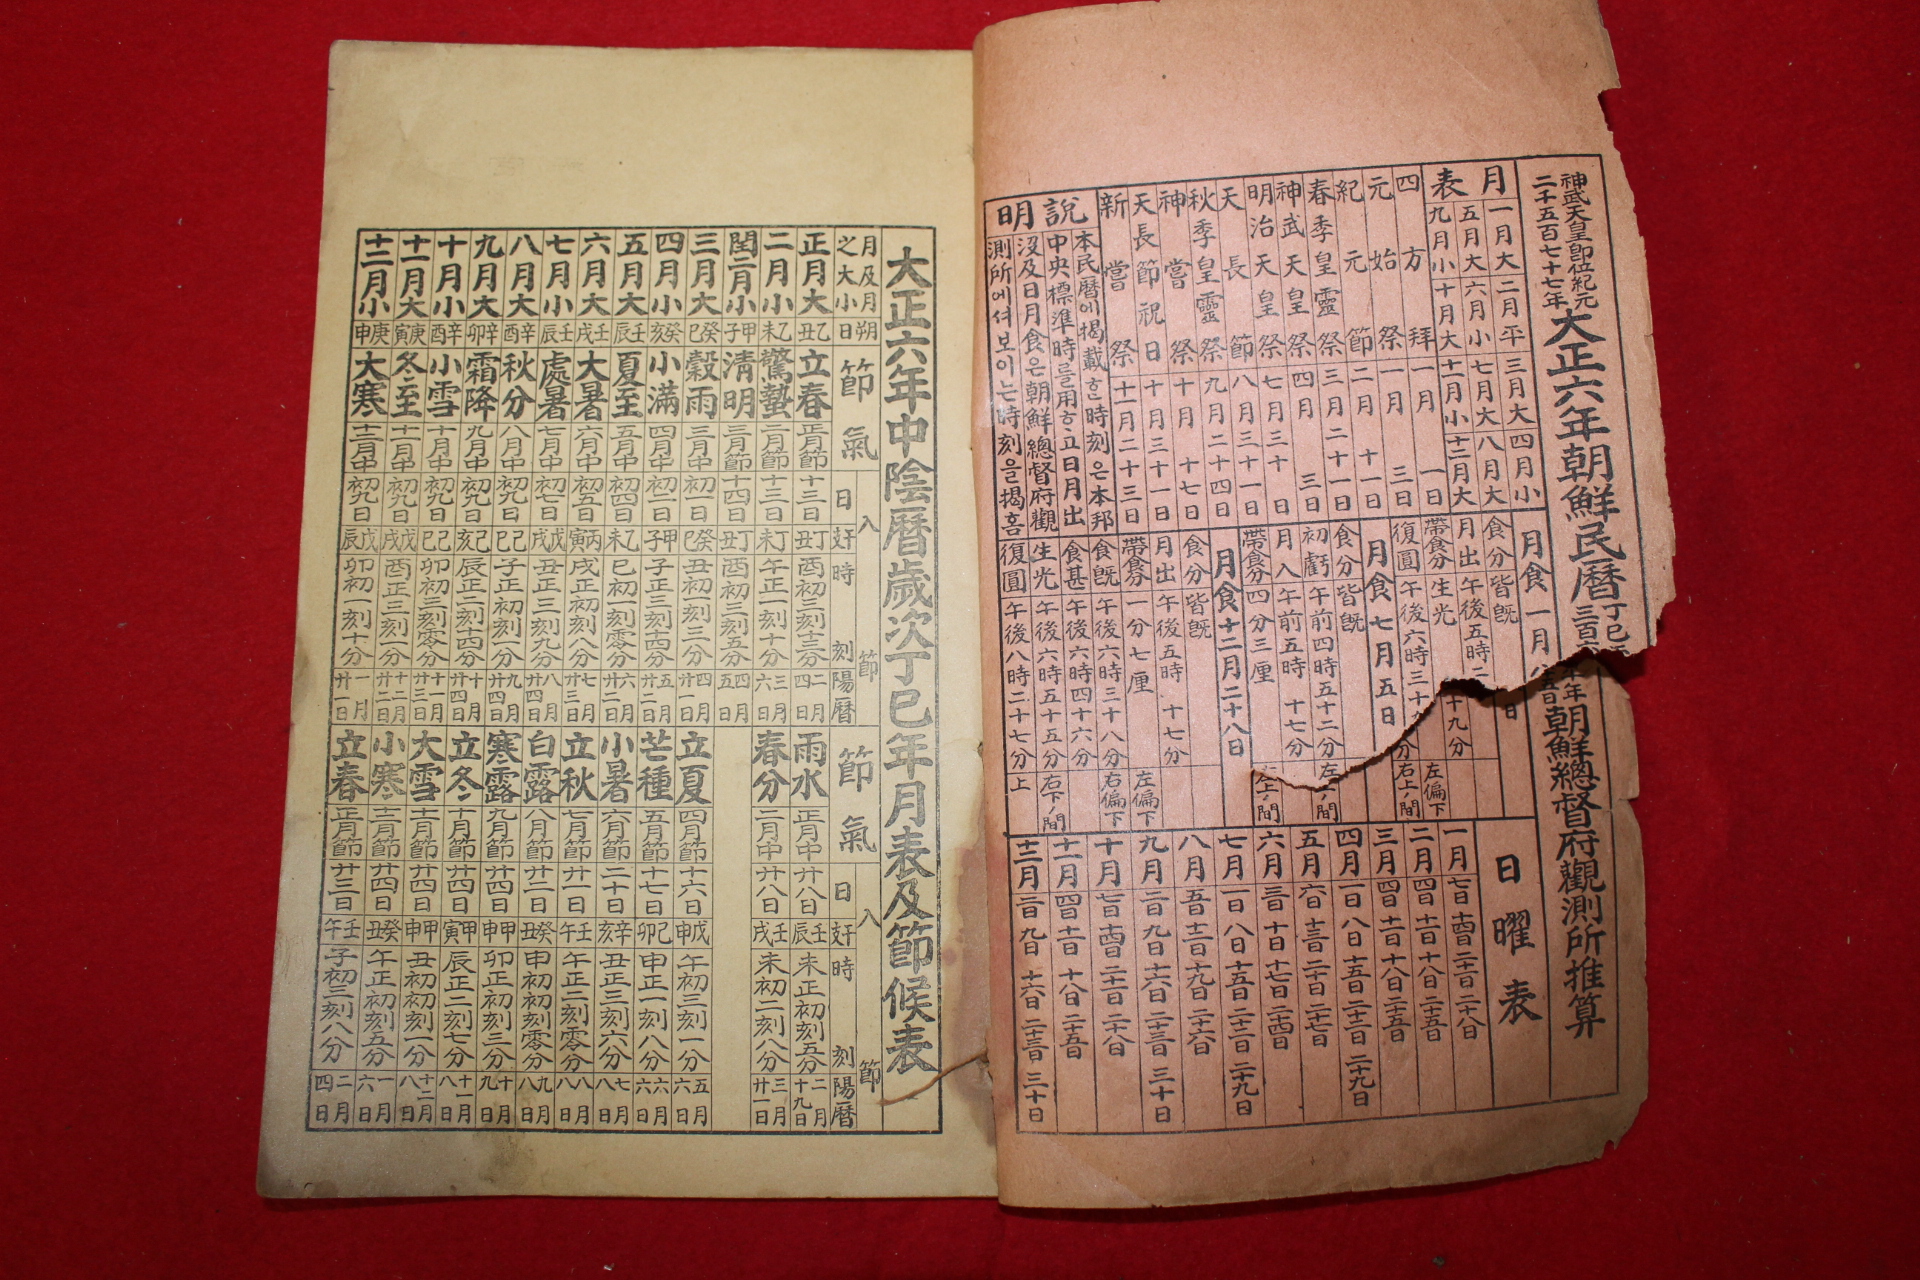 神武天皇卽位紀元
二千五百七十七年
大正六年朝鮮民曆
丁巳
三百
十年
朝鮮總督府觀測所推算
月表
一月大二月平三月大四月小
五月大六月小七月大八月大
九月小十月大十一月小十二月大
四方拜 一月 一日
元始祭 一月 三日
紀元節 二月 十一日
春季皇靈祭 三月二十一日
神武天皇祭 四月 三日
明治天皇祭 七月三十日
天長節 八月三十一日
秋季皇靈祭 九月二十四日
神嘗祭 十月 十七日
天長節祝日 十月三十一日
新嘗祭 十一月二十三日
說明
本民曆에揭載ᄒᆞᆫ時刻은本邦
中央標準時를用ᄒᆞ고日月出
沒及日月食은朝鮮總督府觀
測所에셔보이는時刻을揭홈
月食一月八
日
食分 皆旣
月出 午後五時二
十九分
帶食分 生光
左偏下
復圓 午後六時三十
分
右上ノ間
月食七月五日
食分 皆旣
初虧 午前四時五十二分 左上ノ間
月入 午前五時 十七分
帶食分 四分三厘
左上ノ間
月食十二月二十八日
食分 皆旣
月出 午後五時 十七分
帶食分 一分七厘 左偏下
食旣 午後六時三十八分 右偏下
食甚 午後六時四十六分
生光 午後六時五十五分 右下ノ間
復圓 午後八時二十七分 上
日曜表
一月 七日 十四日 二十一日 二十八日
二月 四日 十一日 十八日 二十五日
三月 四日 十一日 十八日 二十五日
四月 一日 八日 十五日 二十二日 二十九日
五月 六日 十三日 二十日 二十七日
六月 三日 十日 十七日 二十四日
七月 一日 八日 十五日 二十二日 二十九日
八月 五日 十二日 十九日 二十六日
九月 二日 九日 十六日 二十三日 三十日
十月 七日 十四日 二十一日 二十八日
十一月 四日 十一日 十八日 二十五日
十二月 二日 九日 十六日 二十三日 三十日
大正六年中陰曆歲次丁巳年月表及節候表
月及月之大小 朔日 節氣 入節 日 奸 時刻 陽曆 節氣 入節 日 奸 時刻 陽曆
正月大 乙丑 立春 正月節 十三日 丁丑 酉初三刻十三分 二月四日 雨水 正月中 廿八日 壬辰 未正初刻五分 二月十九日
二月小 乙未 驚蟄 二月節 十三日 丁未 午正一刻十分 三月六日 春分 二月中 廿八日 壬戌 未初二刻八分 三月廿一日
閏二月小 甲子 淸明 三月節 十四日 丁丑 酉初三刻五分 四月五日
三月大 癸巳 穀雨 三月中 初一日 癸巳 丑初一刻三分 四月廿一日 立夏 四月節 十六日 戊申 午初三刻一分 五月六日
四月小 癸亥 小滿 四月中 初二日 甲子 子正三刻十四分 五月廿二日 芒種 五月節 十七日 己卯 申正一刻八分 六月六日
五月大 壬辰 夏至 五月中 初四日 乙未 巳初一刻零分 六月廿二日 小暑 六月節 二十日 辛亥 丑正三刻六分 七月八日
六月大 壬戌 大暑 六月中 初五日 丙寅 戌正初刻八分 七月廿三日 立秋 七月節 廿一日 壬午 午正二刻零分 八月八日
七月小 壬辰 處暑 七月中 初七日 戊戌 丑正三刻九分 八月廿四日 白露 八月節 廿二日 癸丑 申初初刻零分 九月八日
八月大 辛酉 秋分 八月中 初九日 己巳 子正初刻一分 九月廿四日 寒露 九月節 廿四日 甲申 卯正初刻三分 十月九日
九月大 辛卯 霜降 九月中 初九日 己亥 辰正二刻十四分 十月廿四日 立冬 十月節 廿四日 甲寅 辰正二刻七分 十一月八日
十月小 辛酉 小雪 十月中 初九日 己巳 卯初三刻零分 十一月廿三日 大雪 十一月節 廿四日 甲申 丑初初刻一分 十二月八日
十一月大 庚寅 冬至 十一月中 初九日 戊戌 酉正三刻一分 十二月廿二日 小寒 十二月節 廿四日 癸丑 午正初刻五分 一月六日
十二月小 庚申 大寒 十二月中 初九日 戊辰 卯初一刻十分 一月廿一日 立春 正月節 廿三日 壬午 子初三刻八分 二月四日